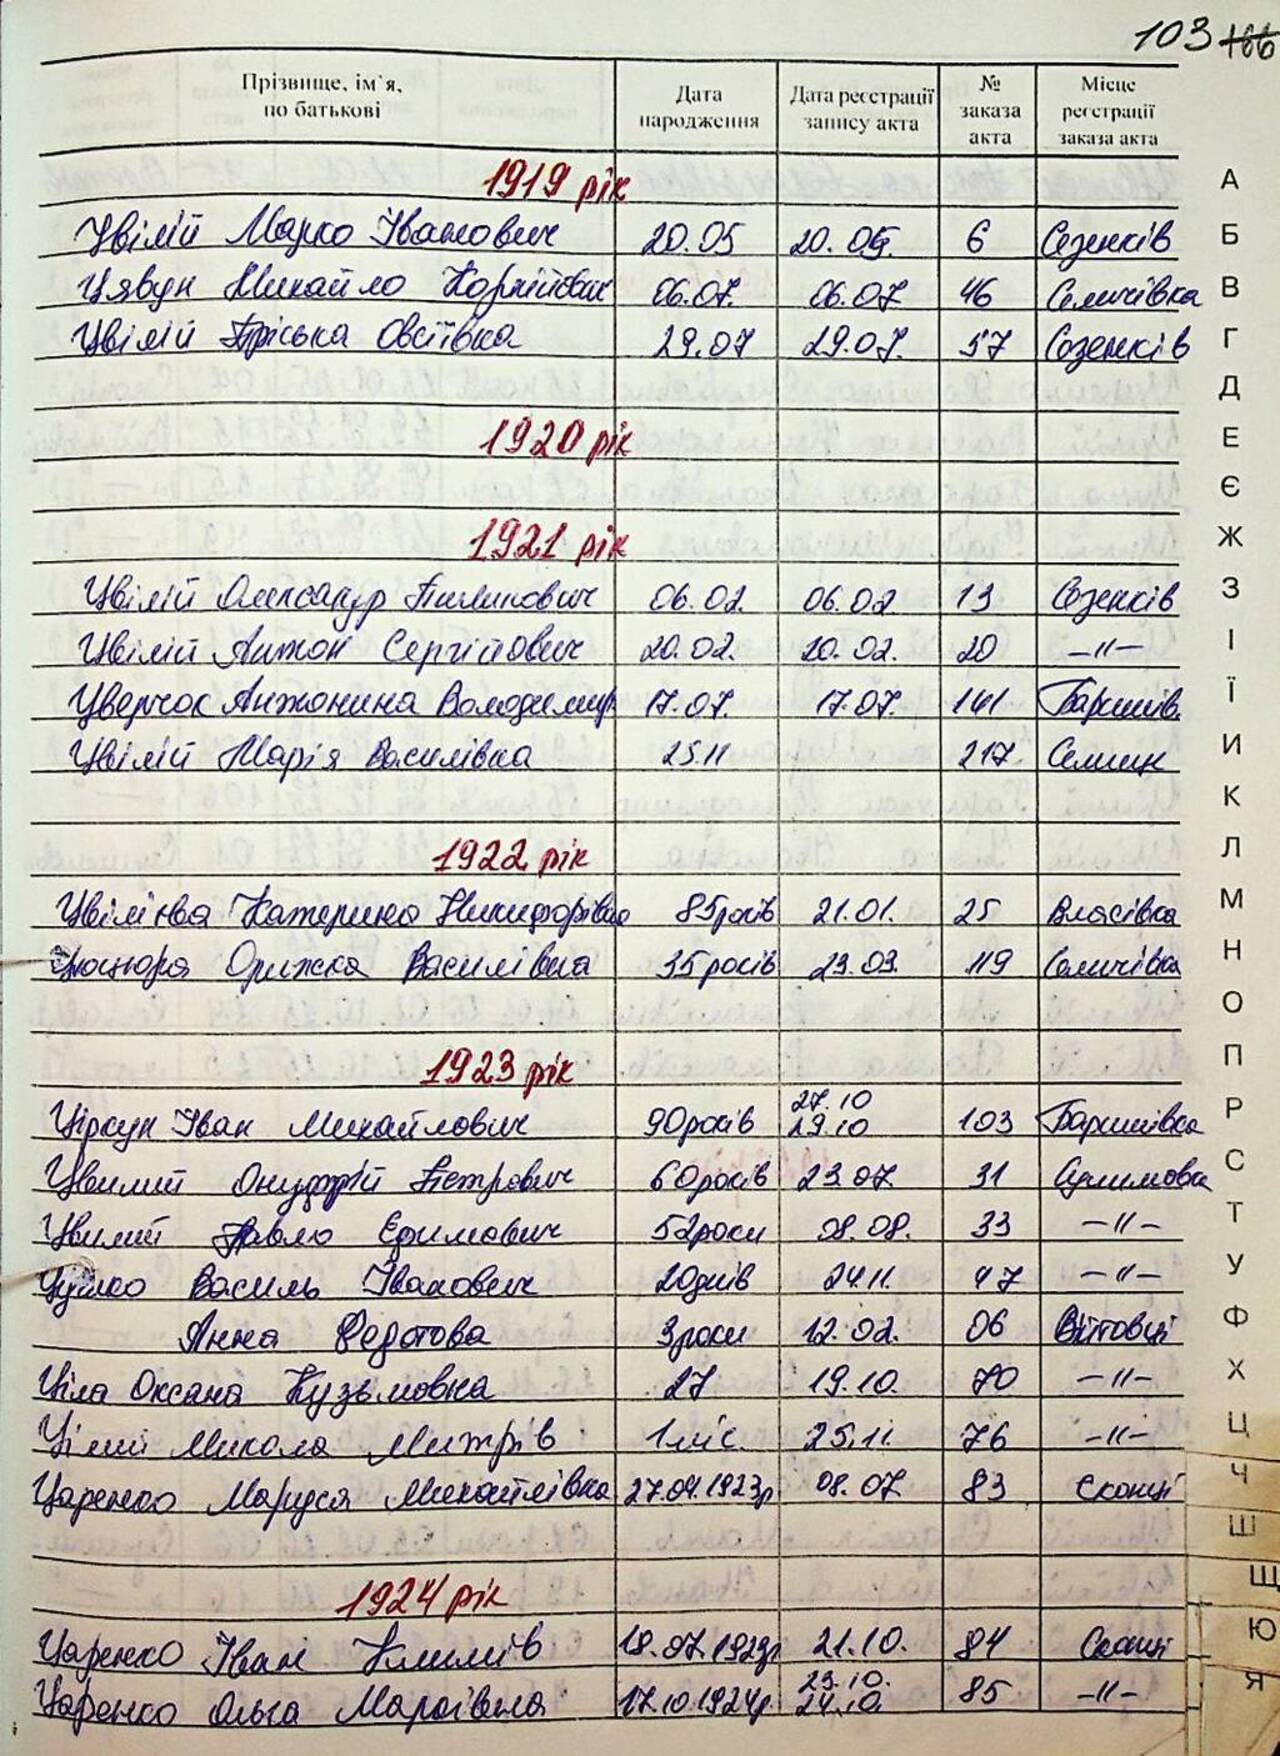 103 166
Прізвище, ім`я, по батькові Дата народження Дата реєстрації запису акта № заказа акта Місце реєстрації заказа акта
1919 рік
Цвілій Марко Іванович 20.05 20.05. 6 Сезенків
Цявун Михайло Корнійович 06.07. 06.07 46 Селичівка
Цвілій Пріська Овсіївка 29.07 29.07. 57 Сезенків
1920 рік
1921 рік
Цвілій Олександр Пилипович 06.02. 06.02 13 Сезенків
Цвілій Антон Сергійович 20.02. 20.02. 20 -"-
Цверчок Антонина Володимир 17.07. 17.07. 141 Баришів.
Цвілій Марія Василівна 25.11 217 Селищ
1922 рік
Цвілієва Катерина Никифорівна 85років 21.01. 25 Власівка
Цюцюра Оришка Василівна 35років 23.03. 119 Селичівка
1923 рік
Ціркун Іван Михайлович 90років 27.10 29.10 103 Баришівка
Цвилий Онуфрій Петрович 60років 23.07. 31 Сулимовка
Цвилий Павло Єфимович 52роки 08.08. 33 -"-
Цупко Василь Іванович 20днів 24.11. 47 -"-
Анна Федотова 3роки 12.02. 06 Війтовці
Ціла Оксана Кузьмовна 27 19.10. 70 -"-
Цілий Микола Митрів 1міс. 25.11. 76 -"-
Царенко Маруся Михайлівна 27.04.1923р 08.07 83 Скопці
1924 рік
Царенко Івані Климів 18.07.1923р 21.10. 84 Скопці
Царенко Ольга Марківна 17.10.1924р. 23.10. 24.10. 85 -"-
А
Б
В
Г
Д
Е
Є
Ж
З
І
Ї
И
К
Л
М
Н
О
П
Р
С
Т
У
Ф
Х
Ц
Ч
Ш
Щ
Ю
Я